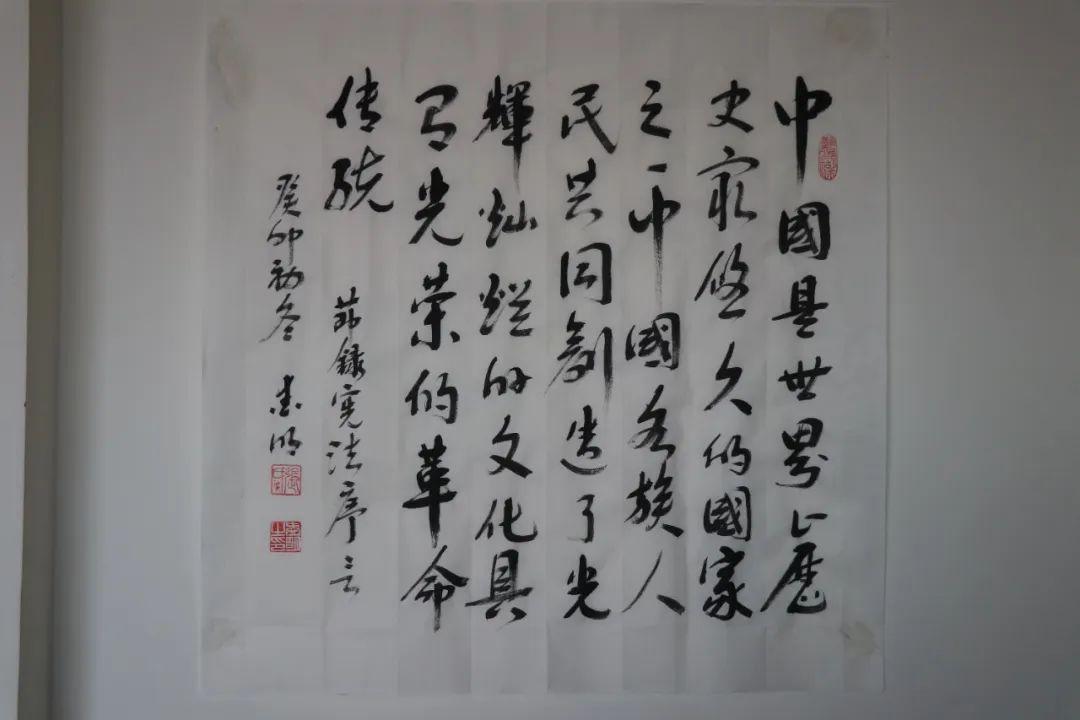 中國是世界上歷
史最悠久的國家
之一中國各族人
民共同創造了光
輝灿爛的文化具
有光榮的革命
传統
節錄宪法序言
癸卯初冬